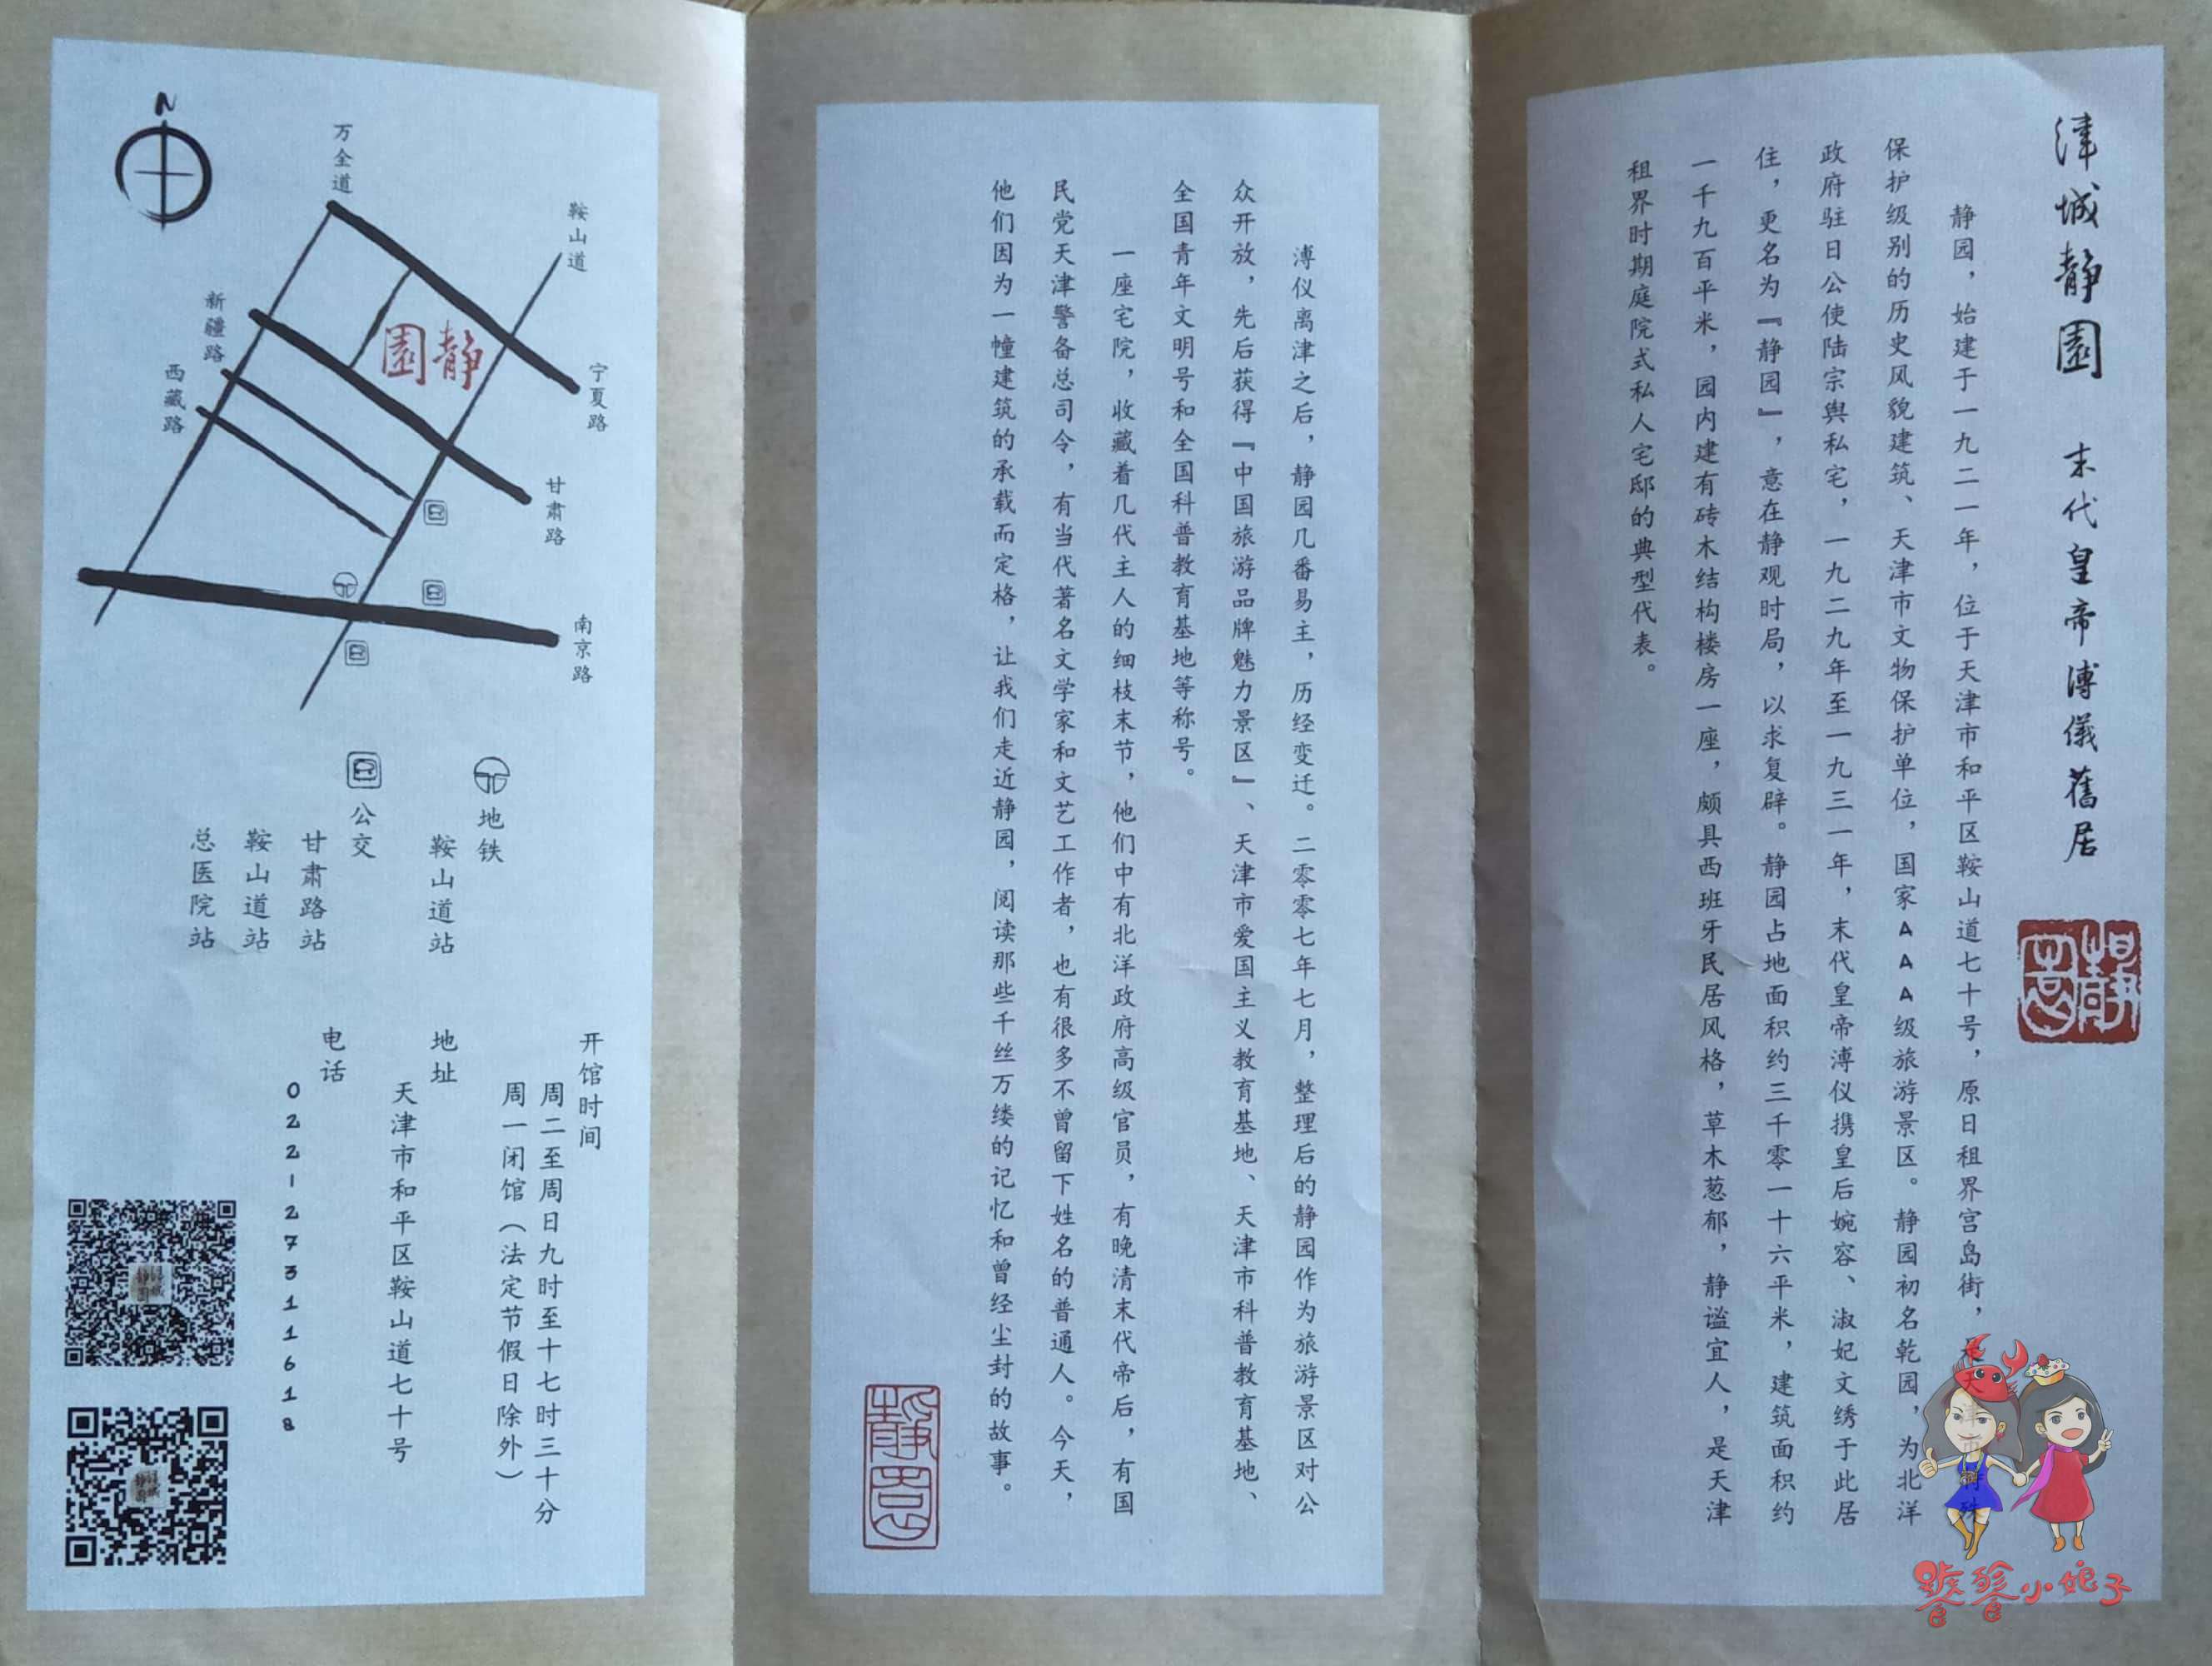 津城静園 末代皇帝溥儀舊居
静園
静园，始建于一九二一年，位于天津市和平区鞍山道七十号，原日租界宫岛街，是天津市特殊
保护级别的历史风貌建筑、天津市文物保护单位，国家AAA级旅游景区。静园初名乾园，为北洋
政府驻日公使陆宗舆私宅，一九二九年至一九三一年，末代皇帝溥仪携皇后婉容、淑妃文绣于此居
住，更名为『静园』，意在静观时局，以求复辟。静园占地面积约三千零一十六平米，建筑面积约
一千九百平米，园内建有砖木结构楼房一座，颇具西班牙民居风格，草木葱郁，静谧宜人，是天津
租界时期庭院式私人宅邸的典型代表。
溥仪离津之后，静园几番易主，历经变迁。二零零七年七月，整理后的静园作为旅游景区对公
众开放，先后获得『中国旅游品牌魅力景区』、天津市爱国主义教育基地、天津市科普教育基地、
全国青年文明号和全国科普教育基地等称号。
一座宅院，收藏着几代主人的细枝末节，他们中有北洋政府高级官员，有晚清末代帝后，有国
民党天津警备总司令，有当代著名文学家和文艺工作者，也有很多不曾留下姓名的普通人。今天，
他们因为一幢建筑的承载而定格，让我们走近静园，阅读那些千丝万缕的记忆和曾经尘封的故事。
静园
N
万全道
鞍山道
新疆路
西藏路
静園
宁夏路
甘肃路
南京路
地铁
鞍山道站
公交
甘肃路站
鞍山道站
总医院站
开馆时间
周二至周日九时至十七时三十分
周一闭馆（法定节假日除外）
地址
天津市和平区鞍山道七十号
电话
022-27311618
饕餮小妮子